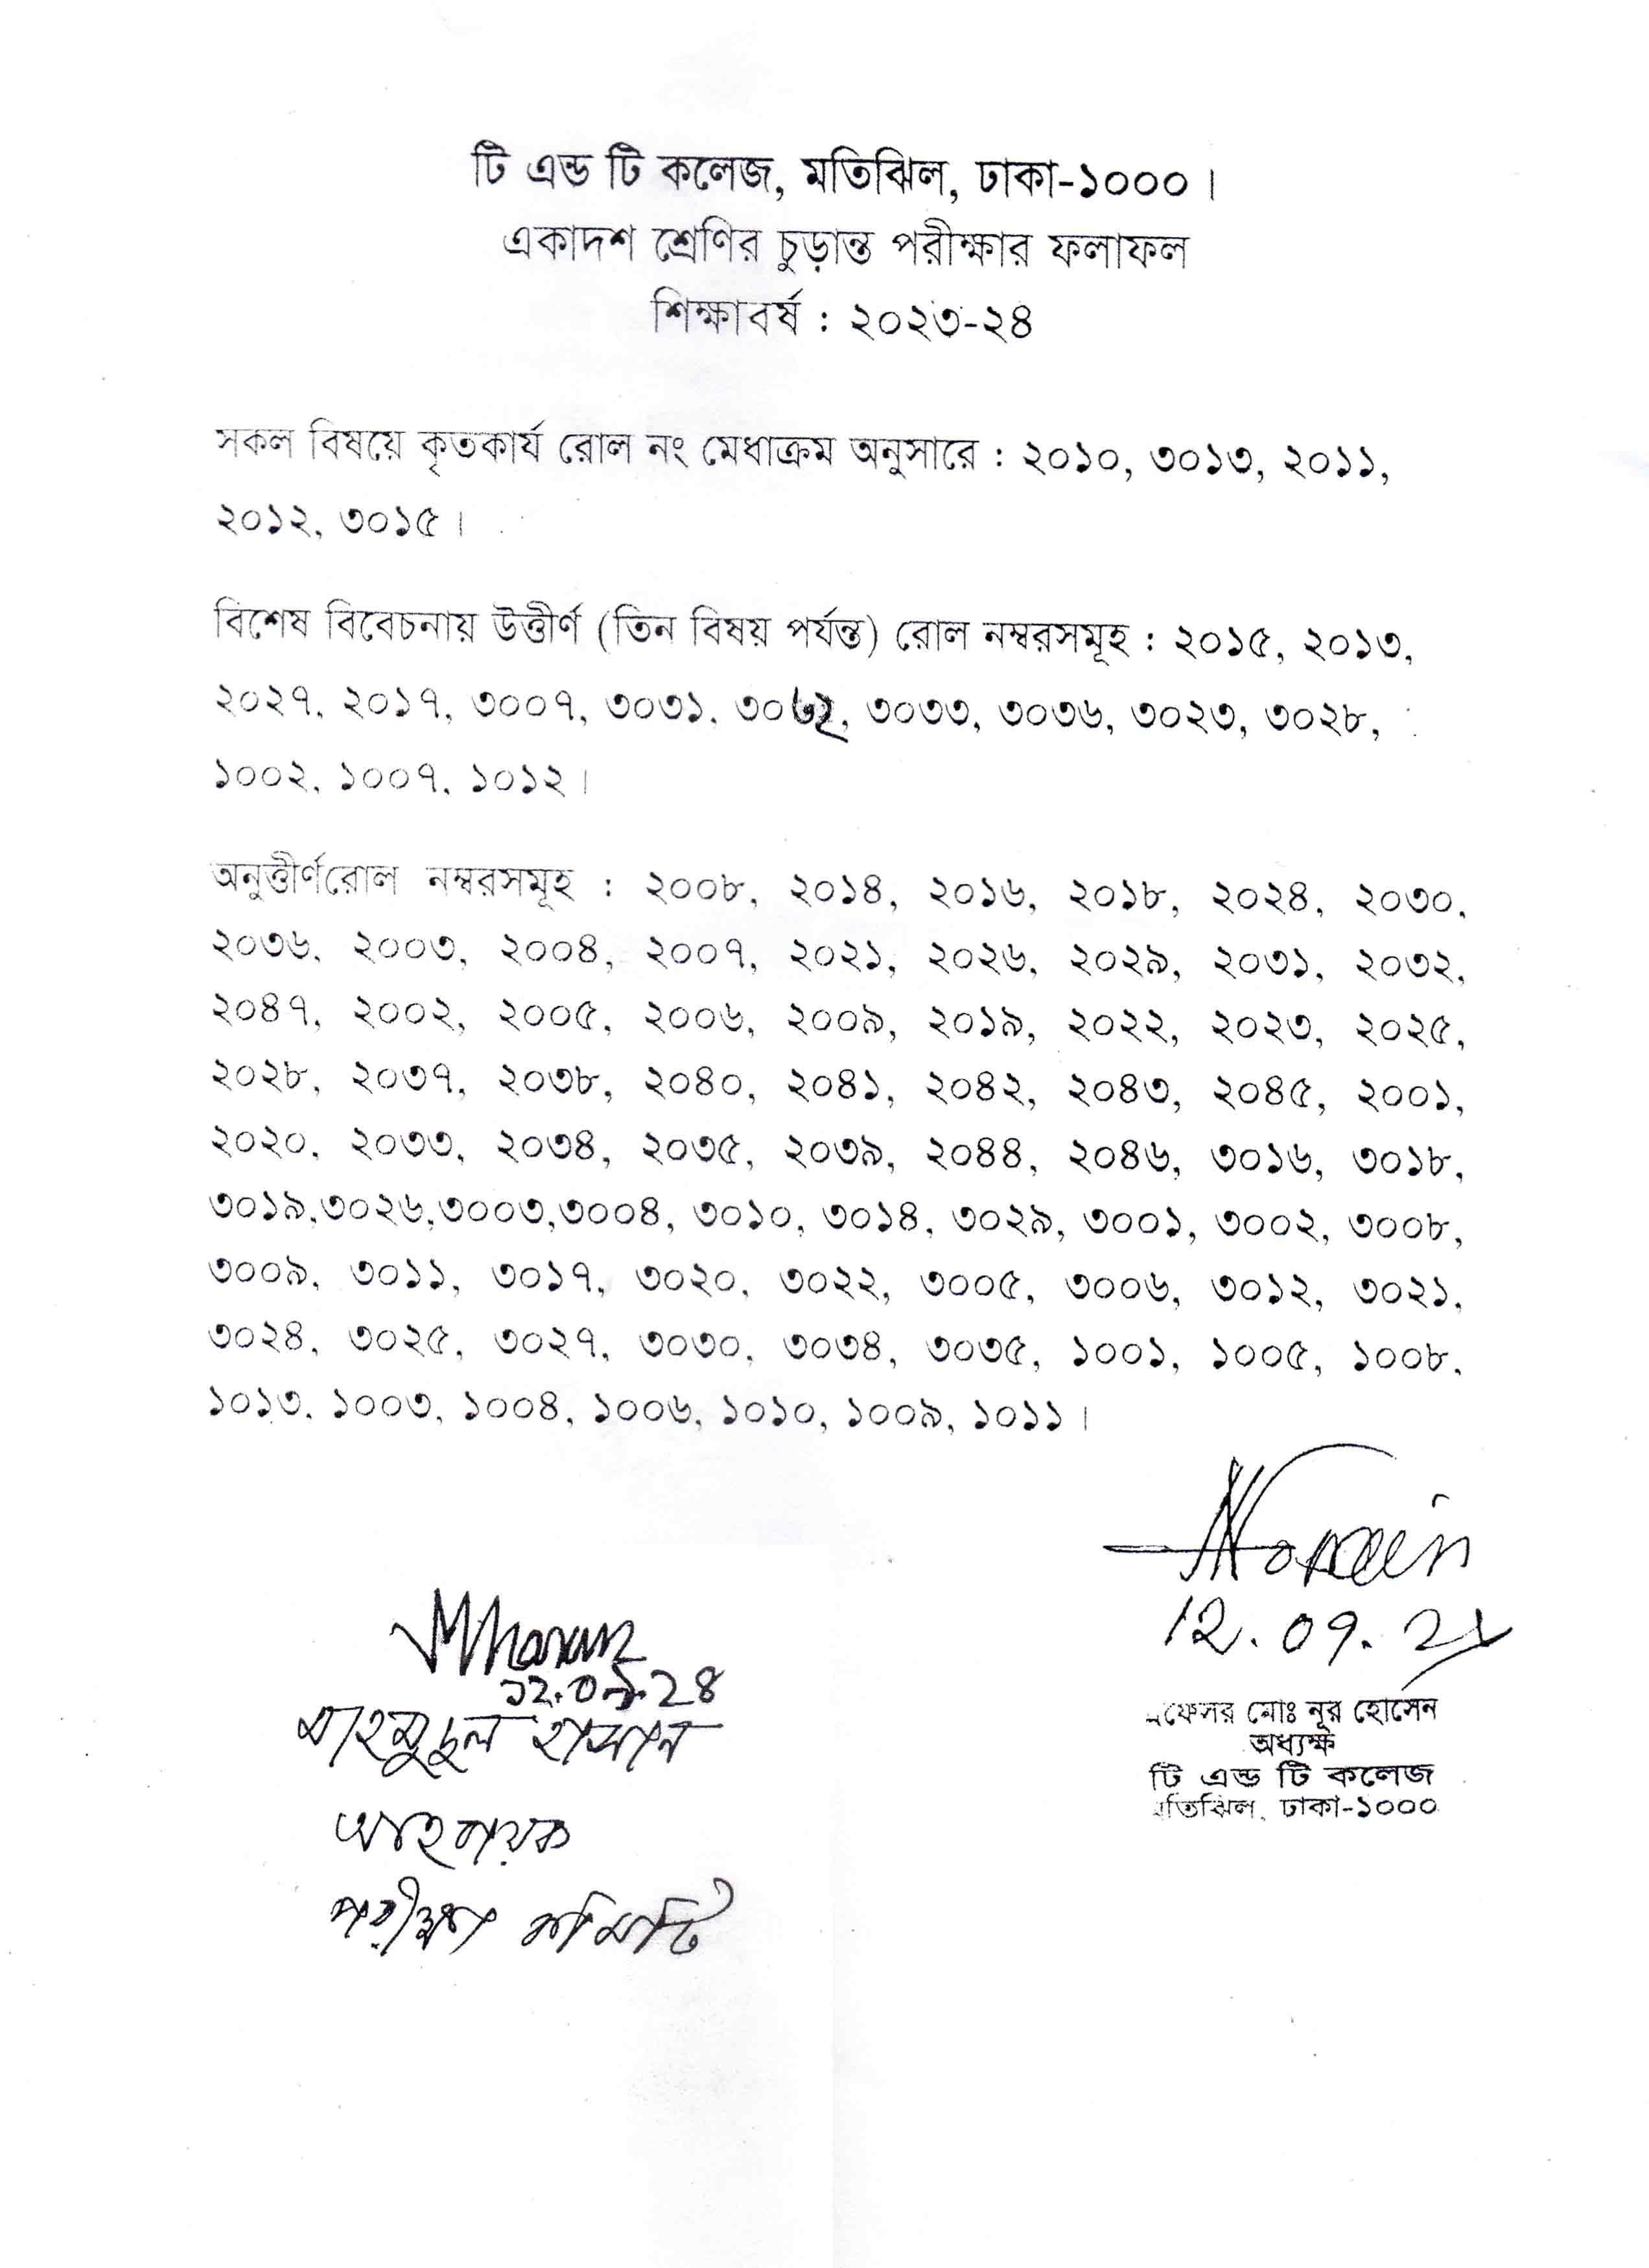 টি এন্ড টি কলেজ, মতিঝিল, ঢাকা-১০০০।
একাদশ শ্রেণির চুড়ান্ত পরীক্ষার ফলাফল
শিক্ষাবর্ষ : ২০২৩-২৪
সকল বিষয়ে কৃতকার্য রোল নং মেধাক্রম অনুসারে : ২০১০, ৩০১৩, ২০১১,
২০১২, ৩০১৫।
বিশেষ বিবেচনায় উত্তীর্ণ (তিন বিষয় পর্যন্ত) রোল নম্বরসমূহ : ২০১৫, ২০১৩,
২০২৭, ২০১৭, ৩০০৭, ৩০৩১, ৩০৩২, ৩০৩৩, ৩০৩৬, ৩০২৩, ৩০২৮,
১০০২, ১০০৭, ১০১২।
অনুত্তীর্ণরোল নম্বরসমূহ : ২০০৮, ২০১৪, ২০১৬, ২০১৮, ২০২৪, ২০৩০,
২০৩৬, ২০০৩, ২০০৪, ২০০৭, ২০২১, ২০২৬, ২০২৯, ২০৩১, ২০৩২,
২০৪৭, ২০০২, ২০০৫, ২০০৬, ২০০৯, ২০১৯, ২০২২, ২০২৩, ২০২৫,
২০২৮, ২০৩৭, ২০৩৮, ২০৪০, ২০৪১, ২০৪২, ২০৪৩, ২০৪৫, ২০০১,
২০২০, ২০৩৩, ২০৩৪, ২০৩৫, ২০৩৯, ২০৪৪, ২০৪৬, ৩০১৬, ৩০১৮,
৩০১৯,৩০২৬,৩০০৩,৩০০৪, ৩০১০, ৩০১৪, ৩০২৯, ৩০০১, ৩০০২, ৩০০৮,
৩০০৯, ৩০১১, ৩০১৭, ৩০২০, ৩০২২, ৩০০৫, ৩০০৬, ৩০১২, ৩০২১,
৩০২৪, ৩০২৫, ৩০২৭, ৩০৩০, ৩০৩৪, ৩০৩৫, ১০০১, ১০০৫, ১০০৮,
১০১৩, ১০০৩, ১০০৪, ১০০৬, ১০১০, ১০০৯, ১০১১।
12.09.24
মাহমুদুল হাসান
আহবায়ক
পরীক্ষা কমিটি
প্রফেসর মোঃ নূর হোসেন
অধ্যক্ষ
টি এন্ড টি কলেজ
মতিঝিল, ঢাকা-১০০০